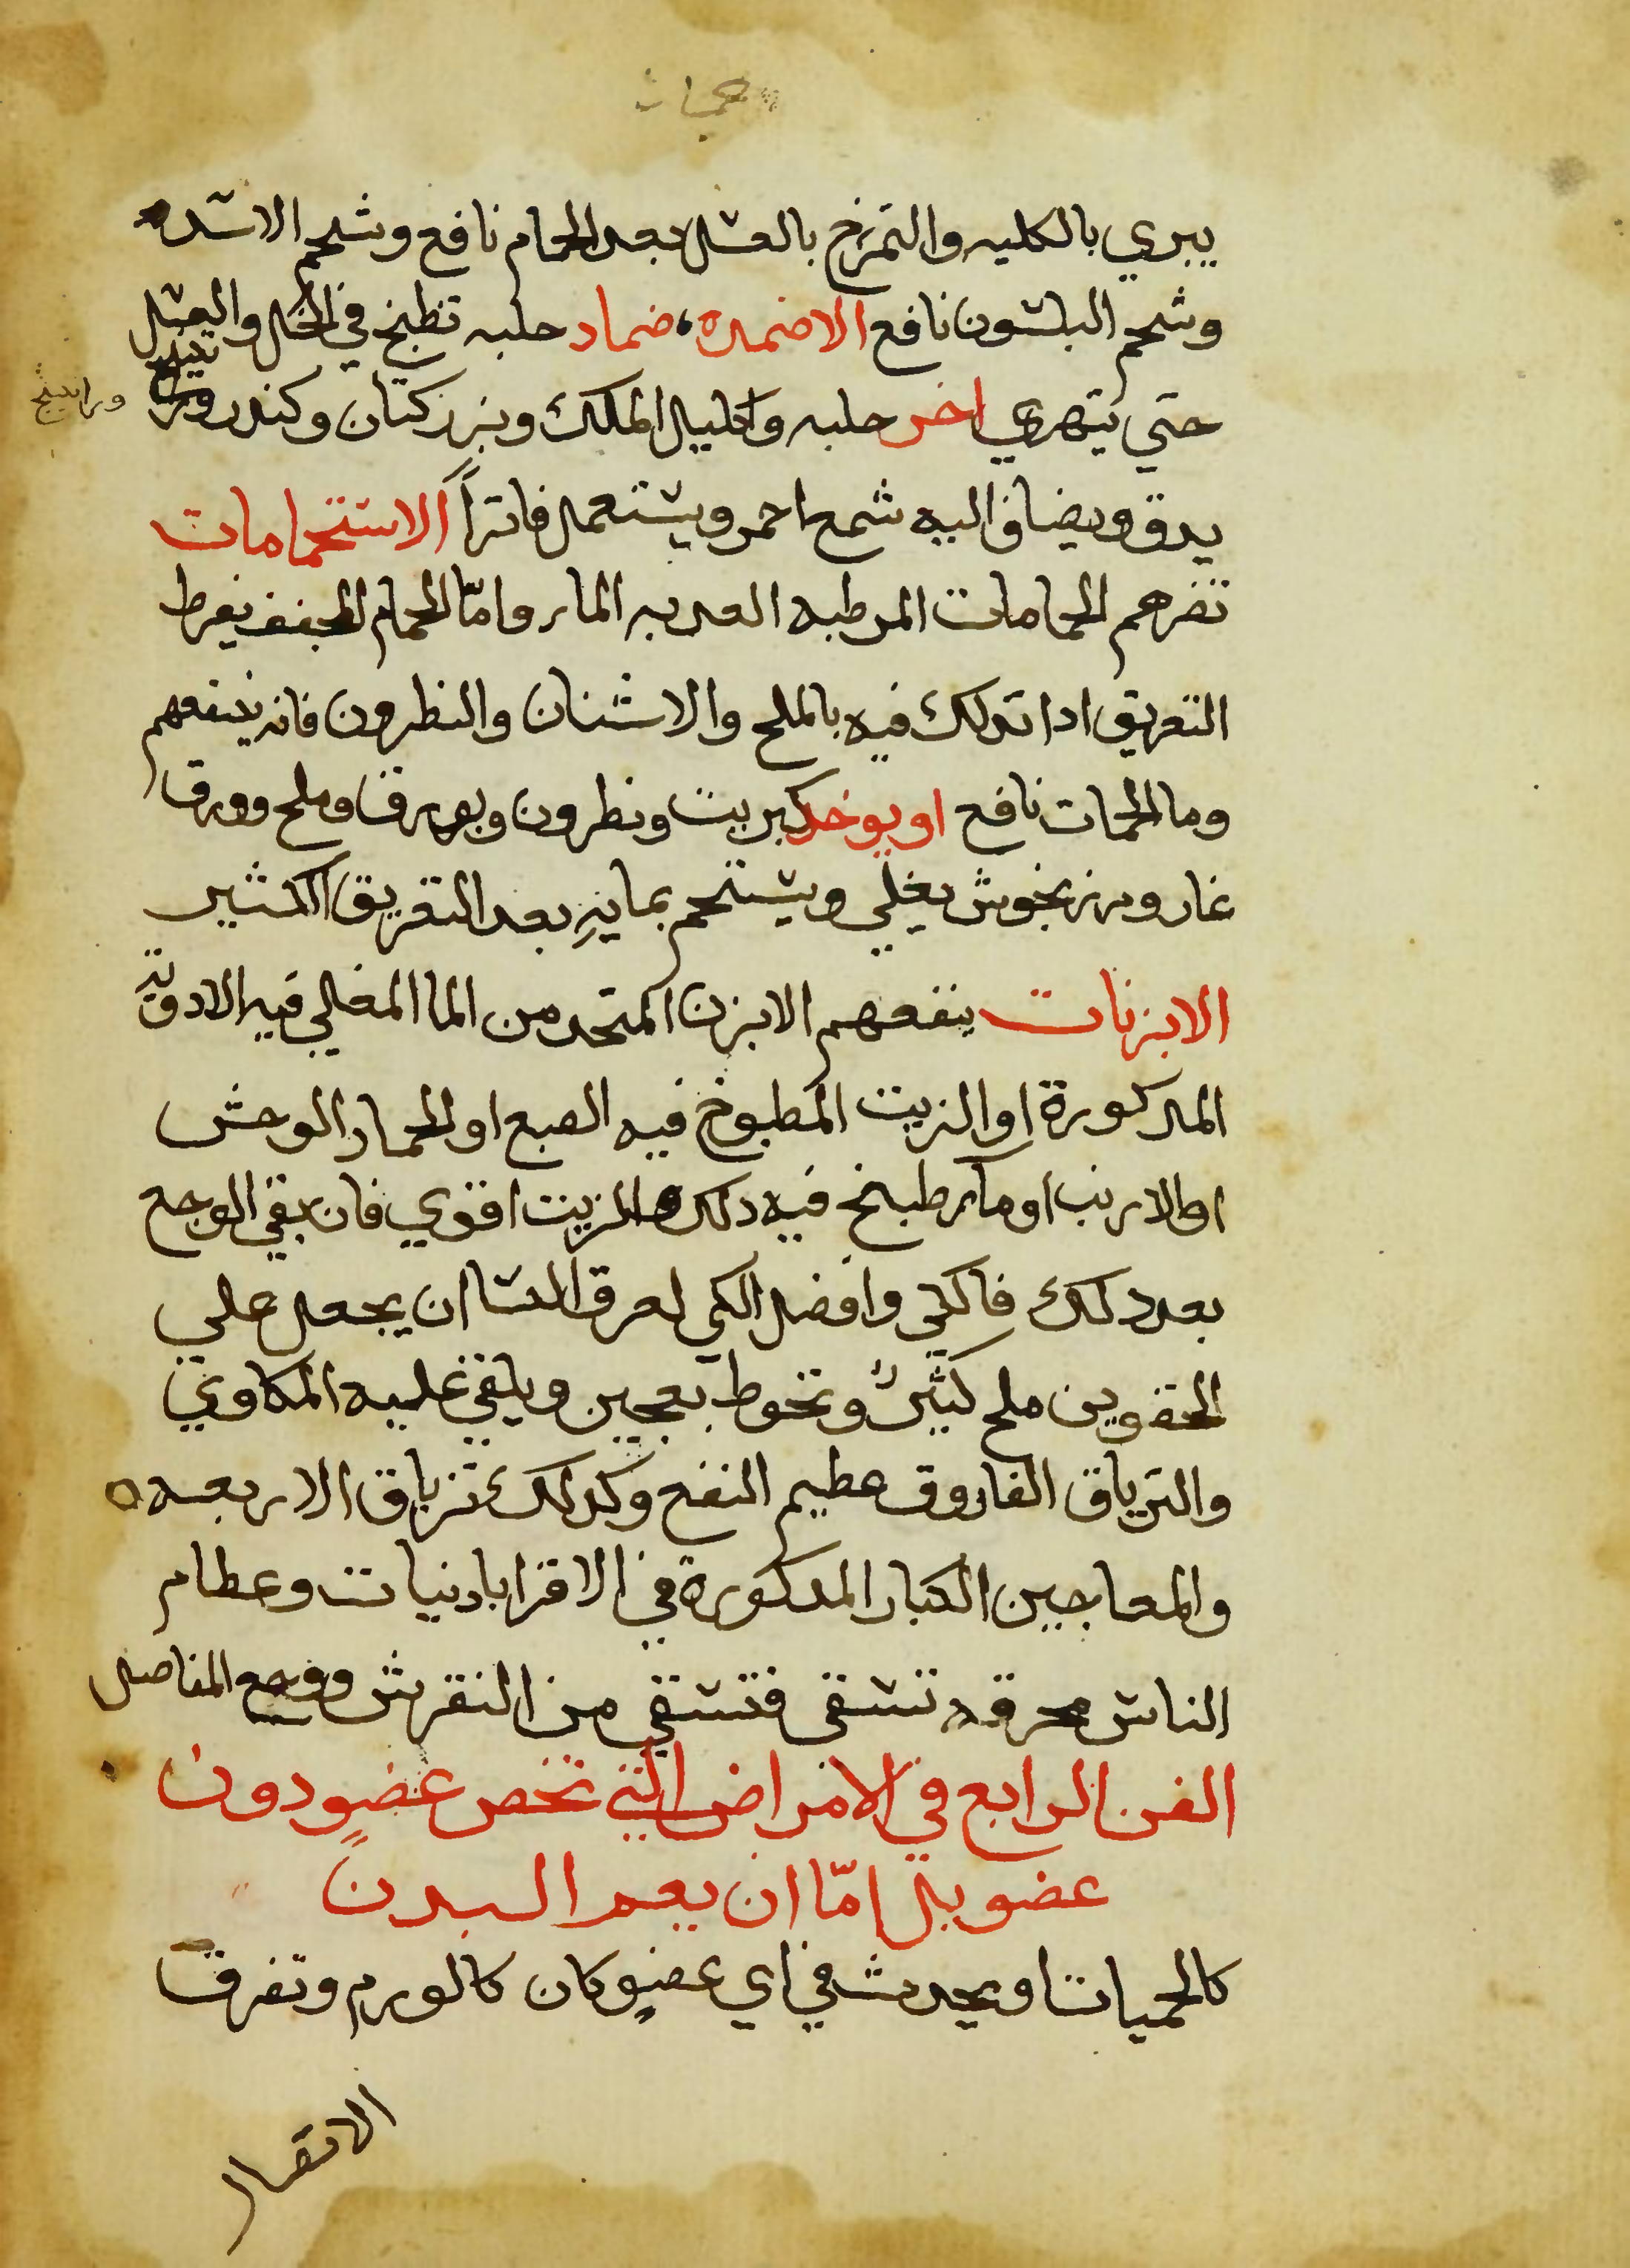 حميات
يبري بالكليه والتمرخ بالعسل بعد الحمام نافع وشحم الاسده
وشحم البلشون نافع الاضمده، ضماد حلبه تطبخ في الخل والعسل
حتي يتهري اخر حلبه واكليل الملك وبزر كتان وكندر
وراتينج
يدق ويضاف اليه شمع احمر ويستعمل فاتراً الاستحمامات
تضرهم الحمامات المرطبه العدبه الماء وامّا الحمام المجفف بفرط
التعريق ادا تدلك فيه بالملح والاشنان والنطرون فانه ينفعهم
وما الحمات نافع او يوخد كبريت ونطرون وبورق وملح وورق
غار ومرزنجوش يغلي ويستحم بمايهِ بعد التعريق الكثير
الابزنات ينفعهم الابزن المتخد من الما المغلي فيه الادويه
المدكورة او الزيت المطبوخ فيه الضبع او الحمار الوحش
او الارنب او ماء طبخ فيه دلك والزيت اقوي فان بقي الوجع
بعد دلك فاكثر وافضل الكي لعرق النسا ان يجعل علي
الحقوين ملح كثيرٌ وتحوط بعجين ويلقي عليه المكاوي
والترياق الفاروق عظيم النفع وكدلك ترياق الاربعه
والمعاجين الكبار المدكورة في الاقرابادنيات وعظام
الناس محرقه تسقي فتشفي من النقرس ووجع المفاصل
الفن الرابع في الامراض التي تخص عضو دون
عضو بل امّا ان يعم البدن
كالحميات او يحدث في اي عضوٍ كان كالورم وتفرق
الاتصال